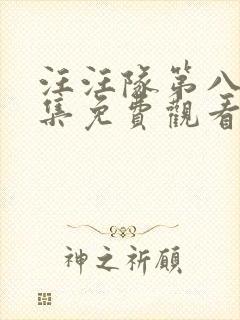 汪汪隊第八
集免費觀看
神之祈願